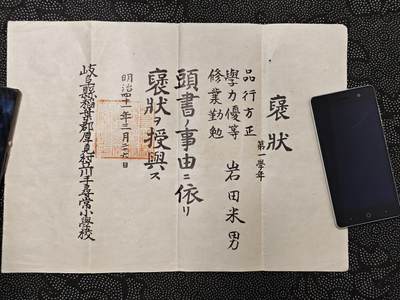 褒狀
第一學年
岩田米男
品行方正
學力優等
修業勤勉
頭書ノ事由ニ依リ
褒狀ヲ授與ス
明治四十一年三月二十八日
岐阜縣稻葉郡厚見村立川手尋常小學校